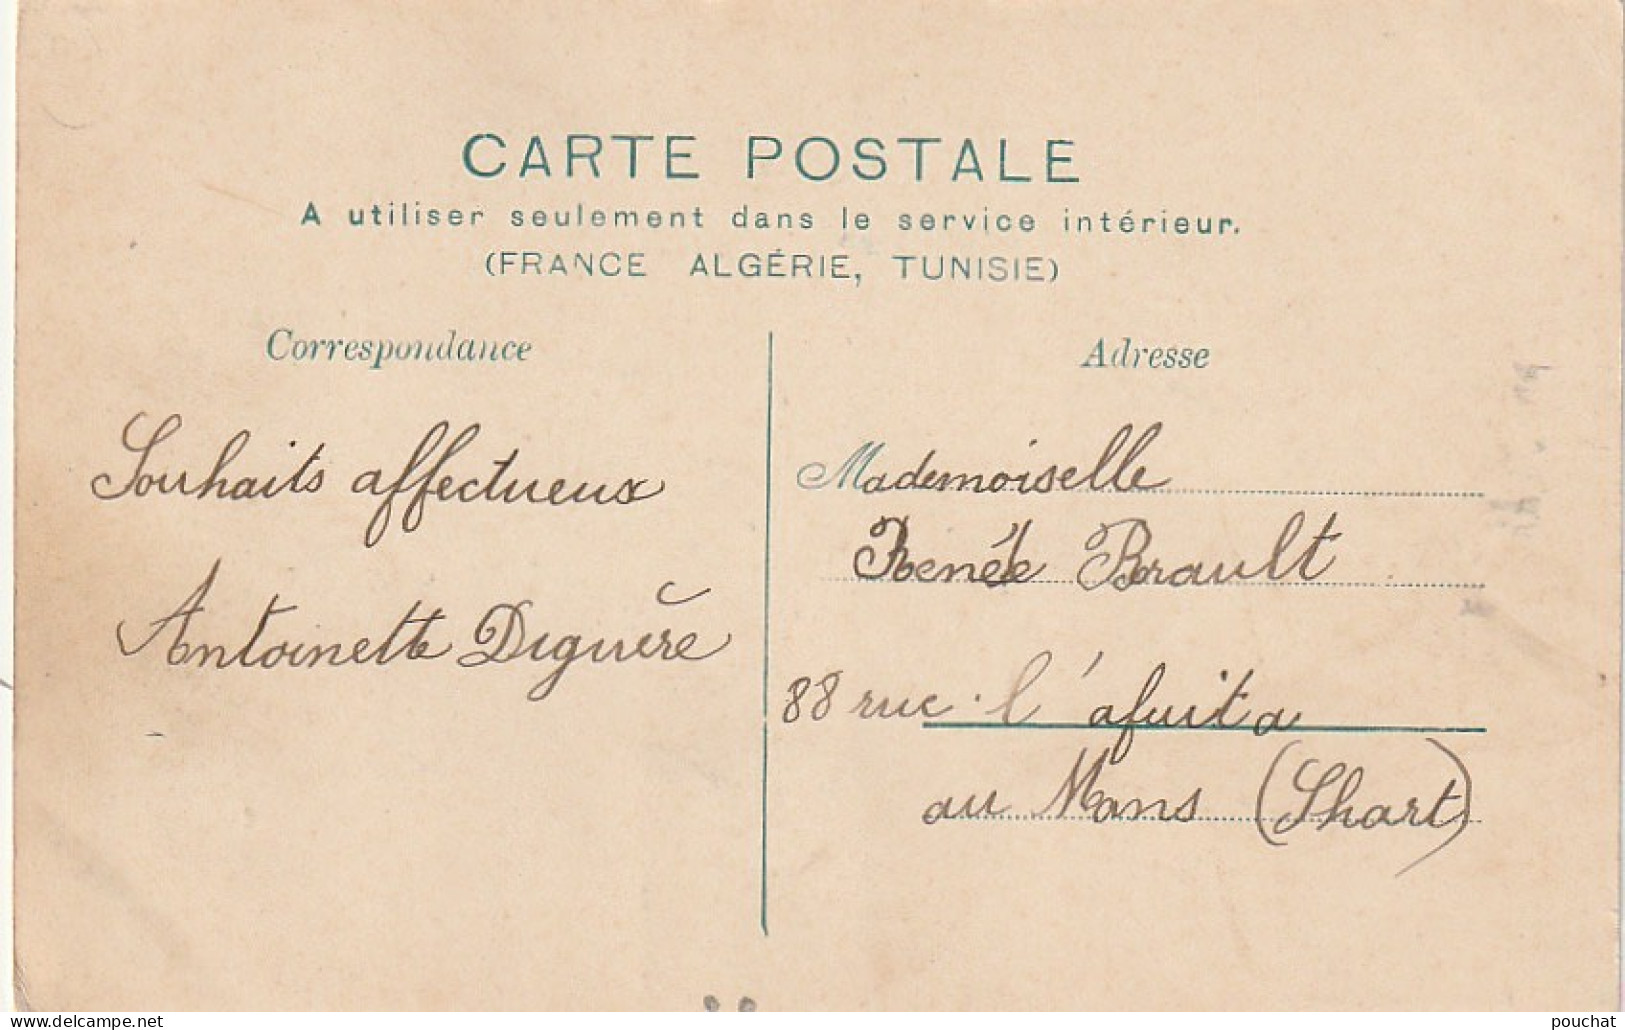 CARTE POSTALE
A utiliser seulement dans le service intérieur.
(FRANCE ALGÉRIE, TUNISIE)
Correspondance
Souhaits affectueux
Antoinette Diguère
Adresse
Mademoiselle
Renée Brault
88 rue l'afuita
au Mans (Shart)
delcampe.net
pouchat